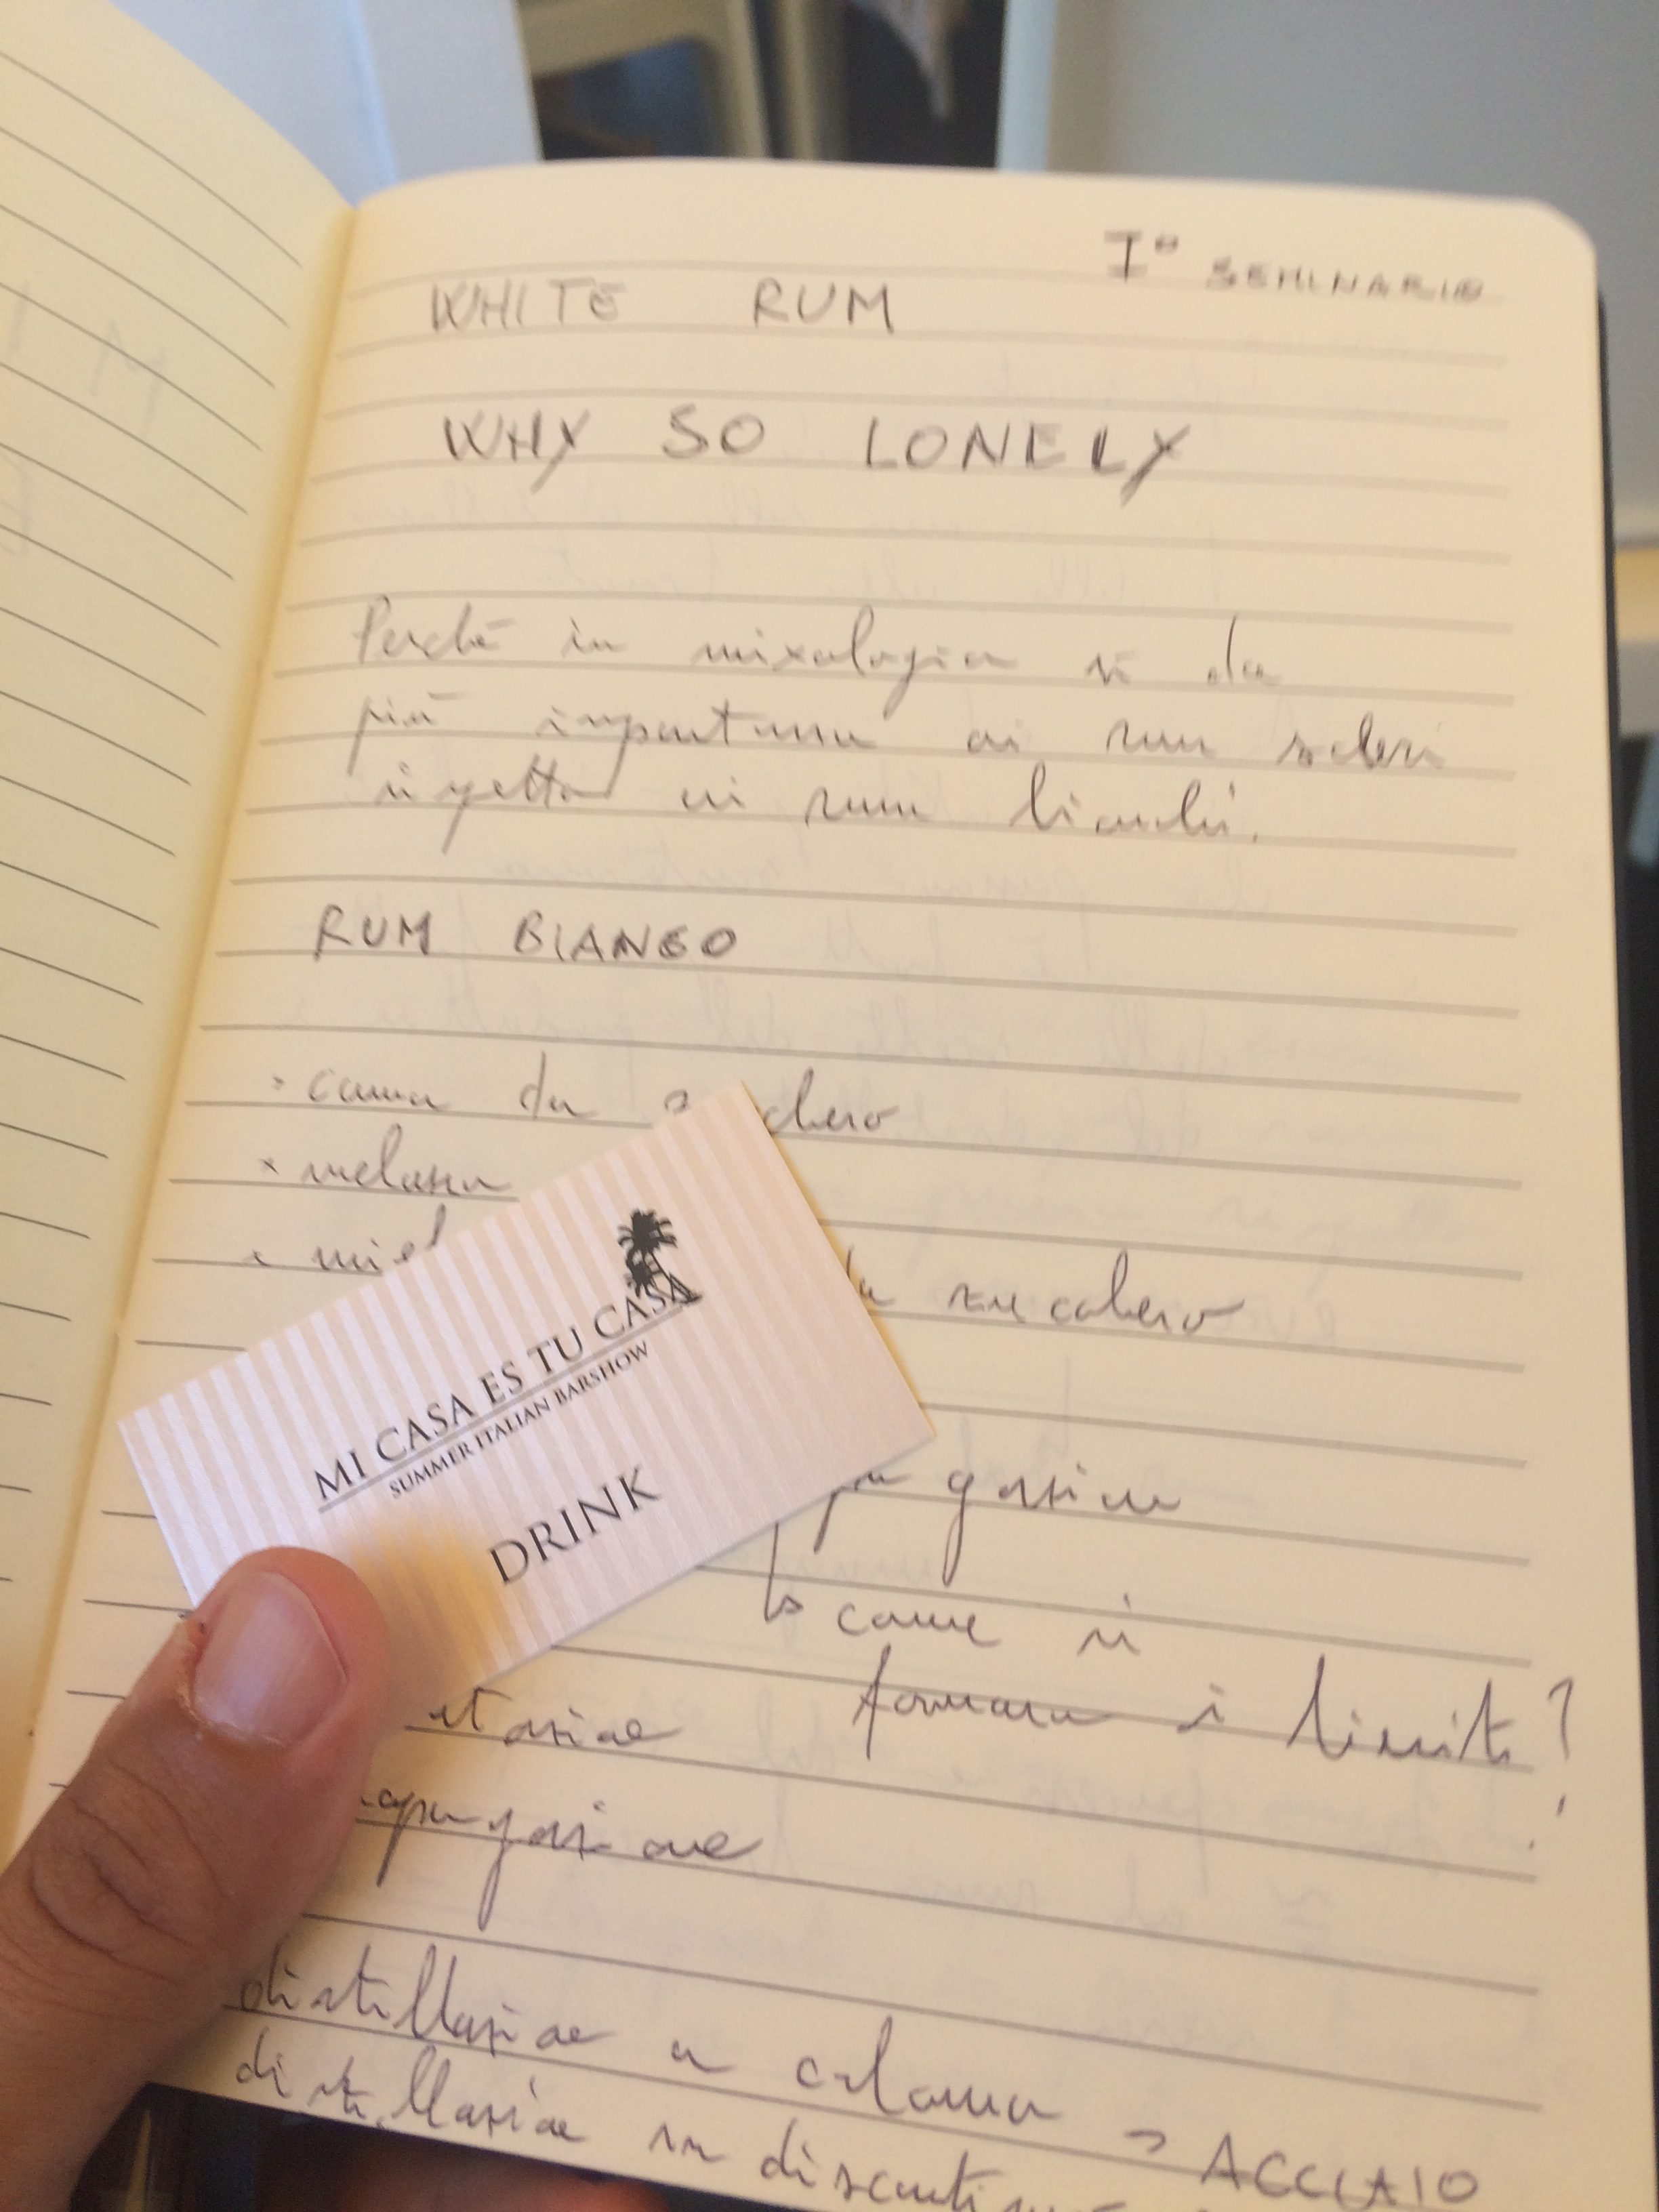 I° SEMINARIO
WHITE RUM
WHY SO LONELY
Perché in mixologia si da
più importanza ai rum scuri
rispetto ai rum bianchi.
RUM BIANCO
canna da chero
melassa
miel da zucchero
MI CASA ES TU CASA
SUMMER ITALIAN BARSHOW
DRINK
come si
formano i lieviti?
distillazione a colonna → ACCIAIO
distillazione in